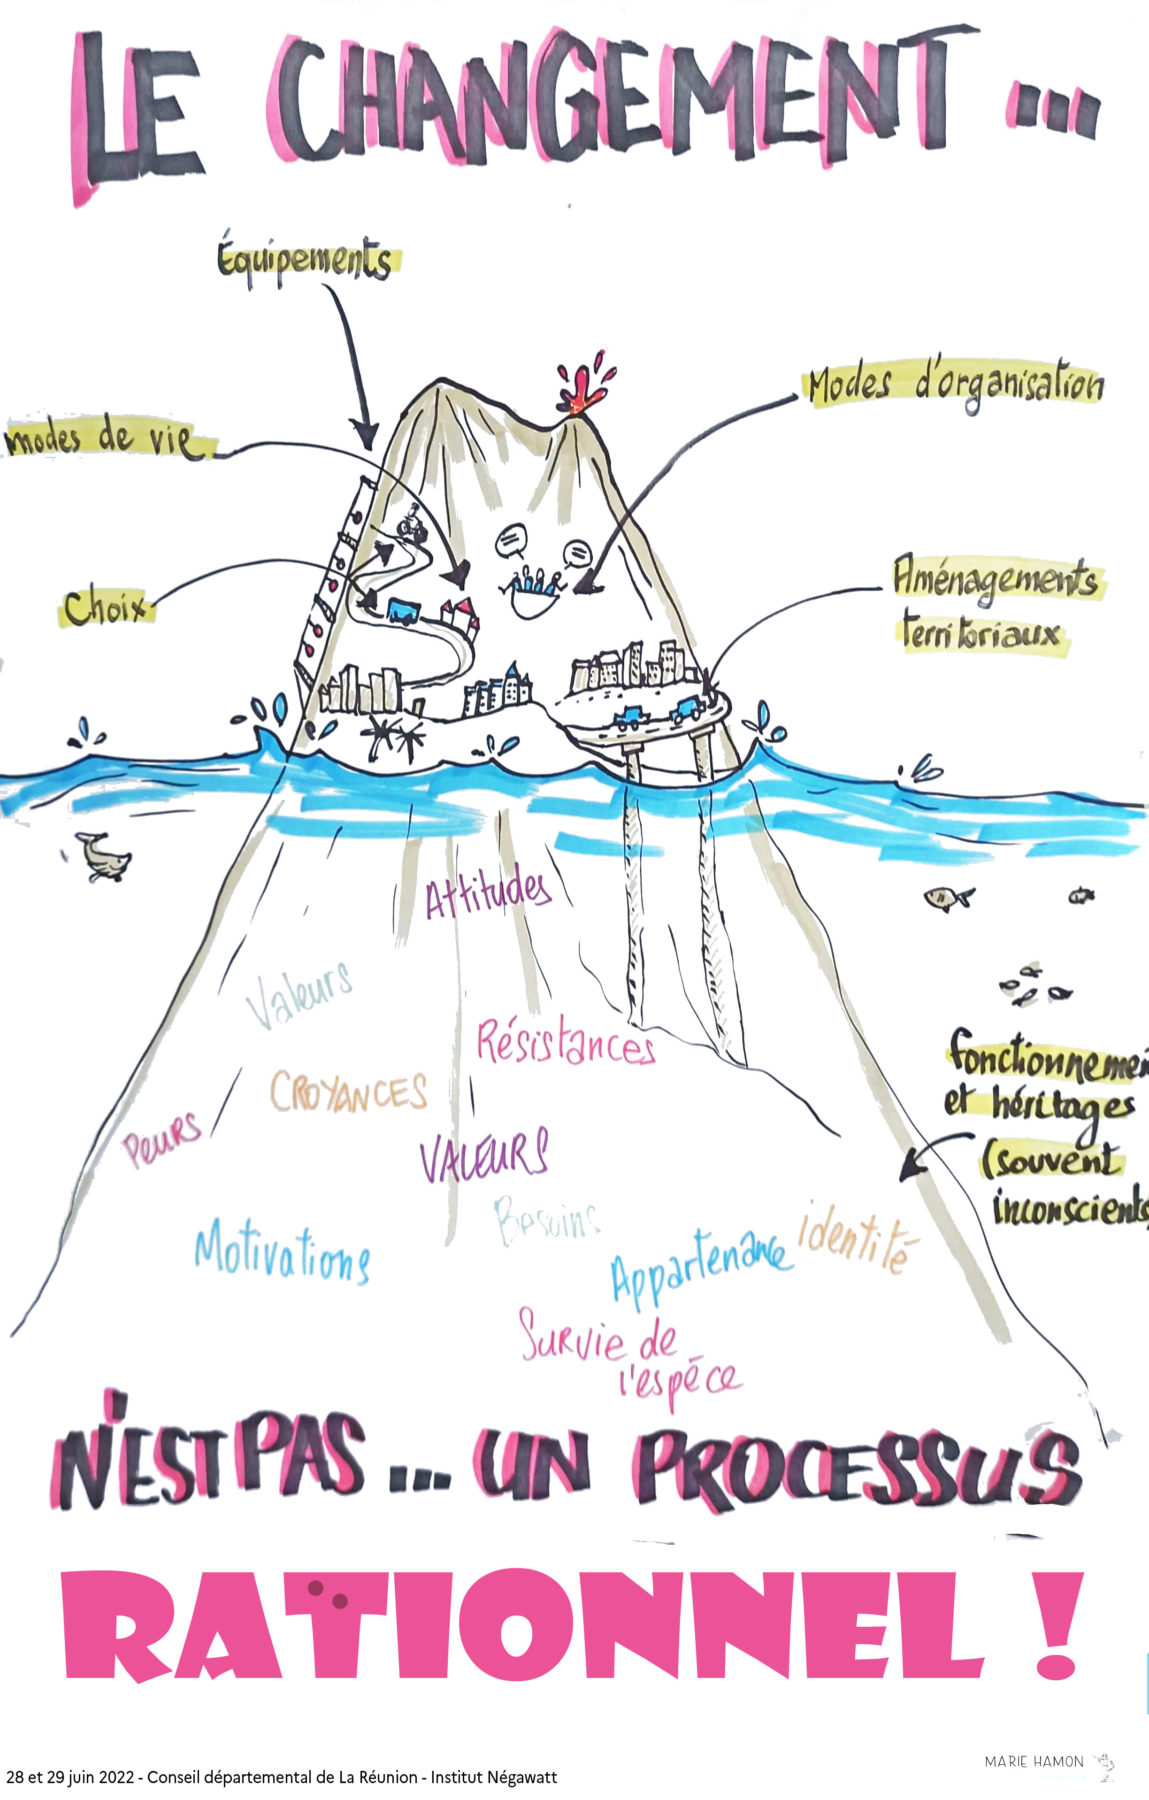 LE CHANGEMENT ...
Équipements
Modes d'organisation
modes de vie
Choix
Aménagements
territoriaux
Attitudes
Valeurs
Résistances
CROYANCES
Peurs
VALEURS
fonctionnemen
et héritages
(souvent
inconscients
Besoins
Motivations
Appartenance
identité
Survie de
l'espèce
N'EST PAS ... UN PROCESSUS
RATIONNEL !
MARIE HAMON
28 et 29 juin 2022 - Conseil départemental de La Réunion - Institut Négawatt